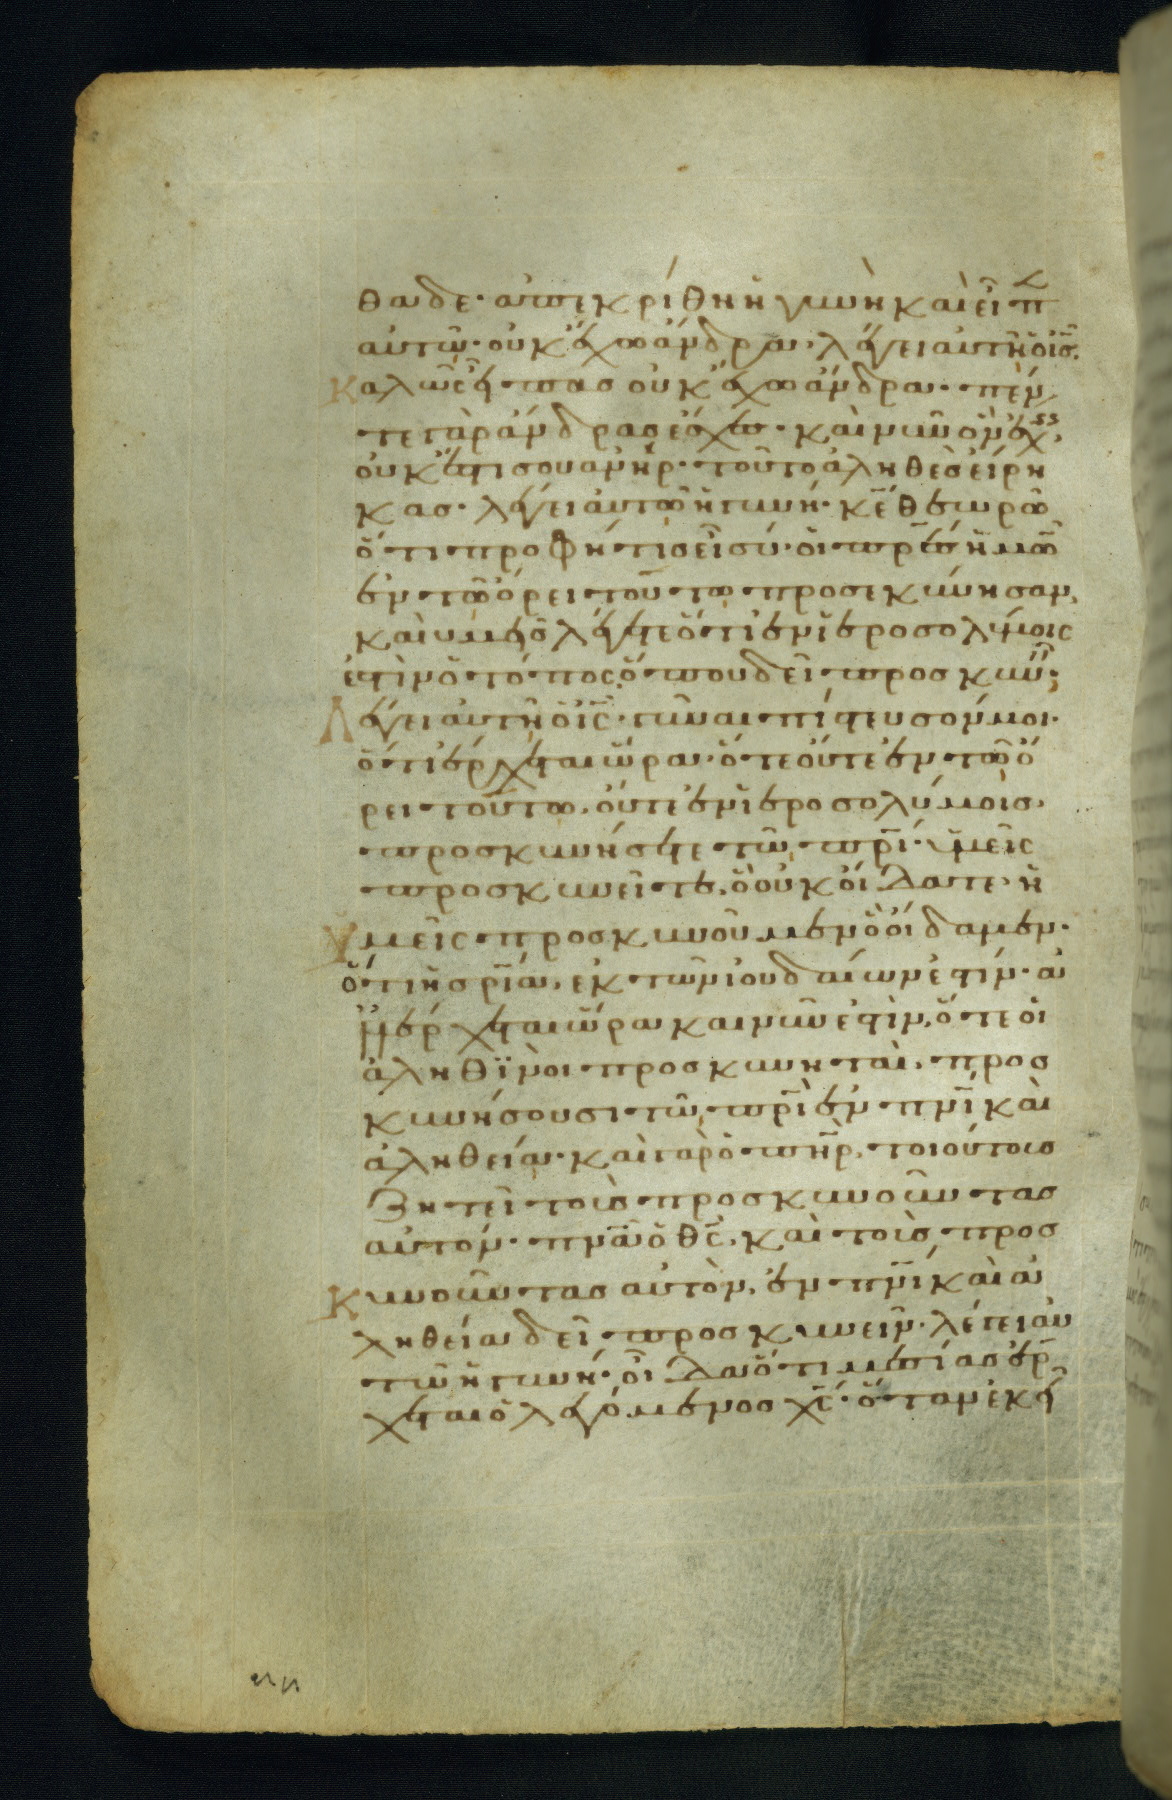 θαδε· ἀπεκρίθη ἡ γυνὴ καὶ εἶπ
αυτῶ· οὐκ ἔχω ἄνδρα· λέγει αυτῆ ὁ ι̅σ̅·
Καλῶς εἶπας οὐκ ἔχω ἄνδρα· πέν
τε γὰρ ἄνδρας ἔσχες· καὶ νῦν ὃν ἔχ
οὐκ ἔστι σου ἀνήρ· τοῦτο ἀληθὲς εἴρη
κας· λέγει αυτῶ ἡ γυνή· κ̅ε̅ θεωρῶ
ὅτι προφήτις εἶ σύ· οἱ π̅ρ̅ε̅ς ἡμῶ
ἐν τῶ ὄρει τούτω προσεκύνησαν,
καὶ υμεῖς λέγετε ὅτι ἐν ἱεροσολύμοις
ἐστὶν ὁ τόπος, ὅπου δεῖ προσκυν·
Λέγει αυτῆ ὁ ι̅ς̅· γύναι πίστευσόν μοι·
ὅτι ἔρχεται ὥρα· ὅτε οὔτε ἐν τῶ ὄ
ρει τούτω, οὔτε ἐν ἱεροσολύμοις,
προσκυνήσετε τῶ π̅ρ̅ι̅· ὑμεῖς
προσκυνεῖτε, ὃ οὐκ οἴδατε· ἡ
μεῖς προσκυνοῦμεν ὃ οἴδαμεν·
ὅτι ἡ σ̅ρ̅ι̅α, εκ τῶν ἰουδαίων ἐστίν· ἀ
λλ' ἔρχεται ὥρα και νῦν ἐστὶν, ὅτε οἱ
ἀληθϊνοὶ προσκυνηταὶ, προσ
κυνήσουσι τῶ π̅ρ̅ι̅ ἐν π̅ν̅ι̅ καὶ
ἀληθεία· καὶ γὰρ ὁ π̅η̅ρ̅, τοιούτους
ζητεῖ τοὺς προσκυνοῦντας
αὐτόν· π̅ν̅α̅ ὁ θ̅ς̅, καὶ τοὺς προσ
Κυνοῦντας αὐτὸν, ἐν π̅ν̅ι̅ καὶ ἀ
ληθεία δεῖ προσκυνεῖν· λέγει αὐ
τῶ ἡ γυνή· οἶδα ὅτι μεσίας ἔρ
χεται ὁ λεγόμενος χ̅ς̅· ὅταν ἐκεῖ